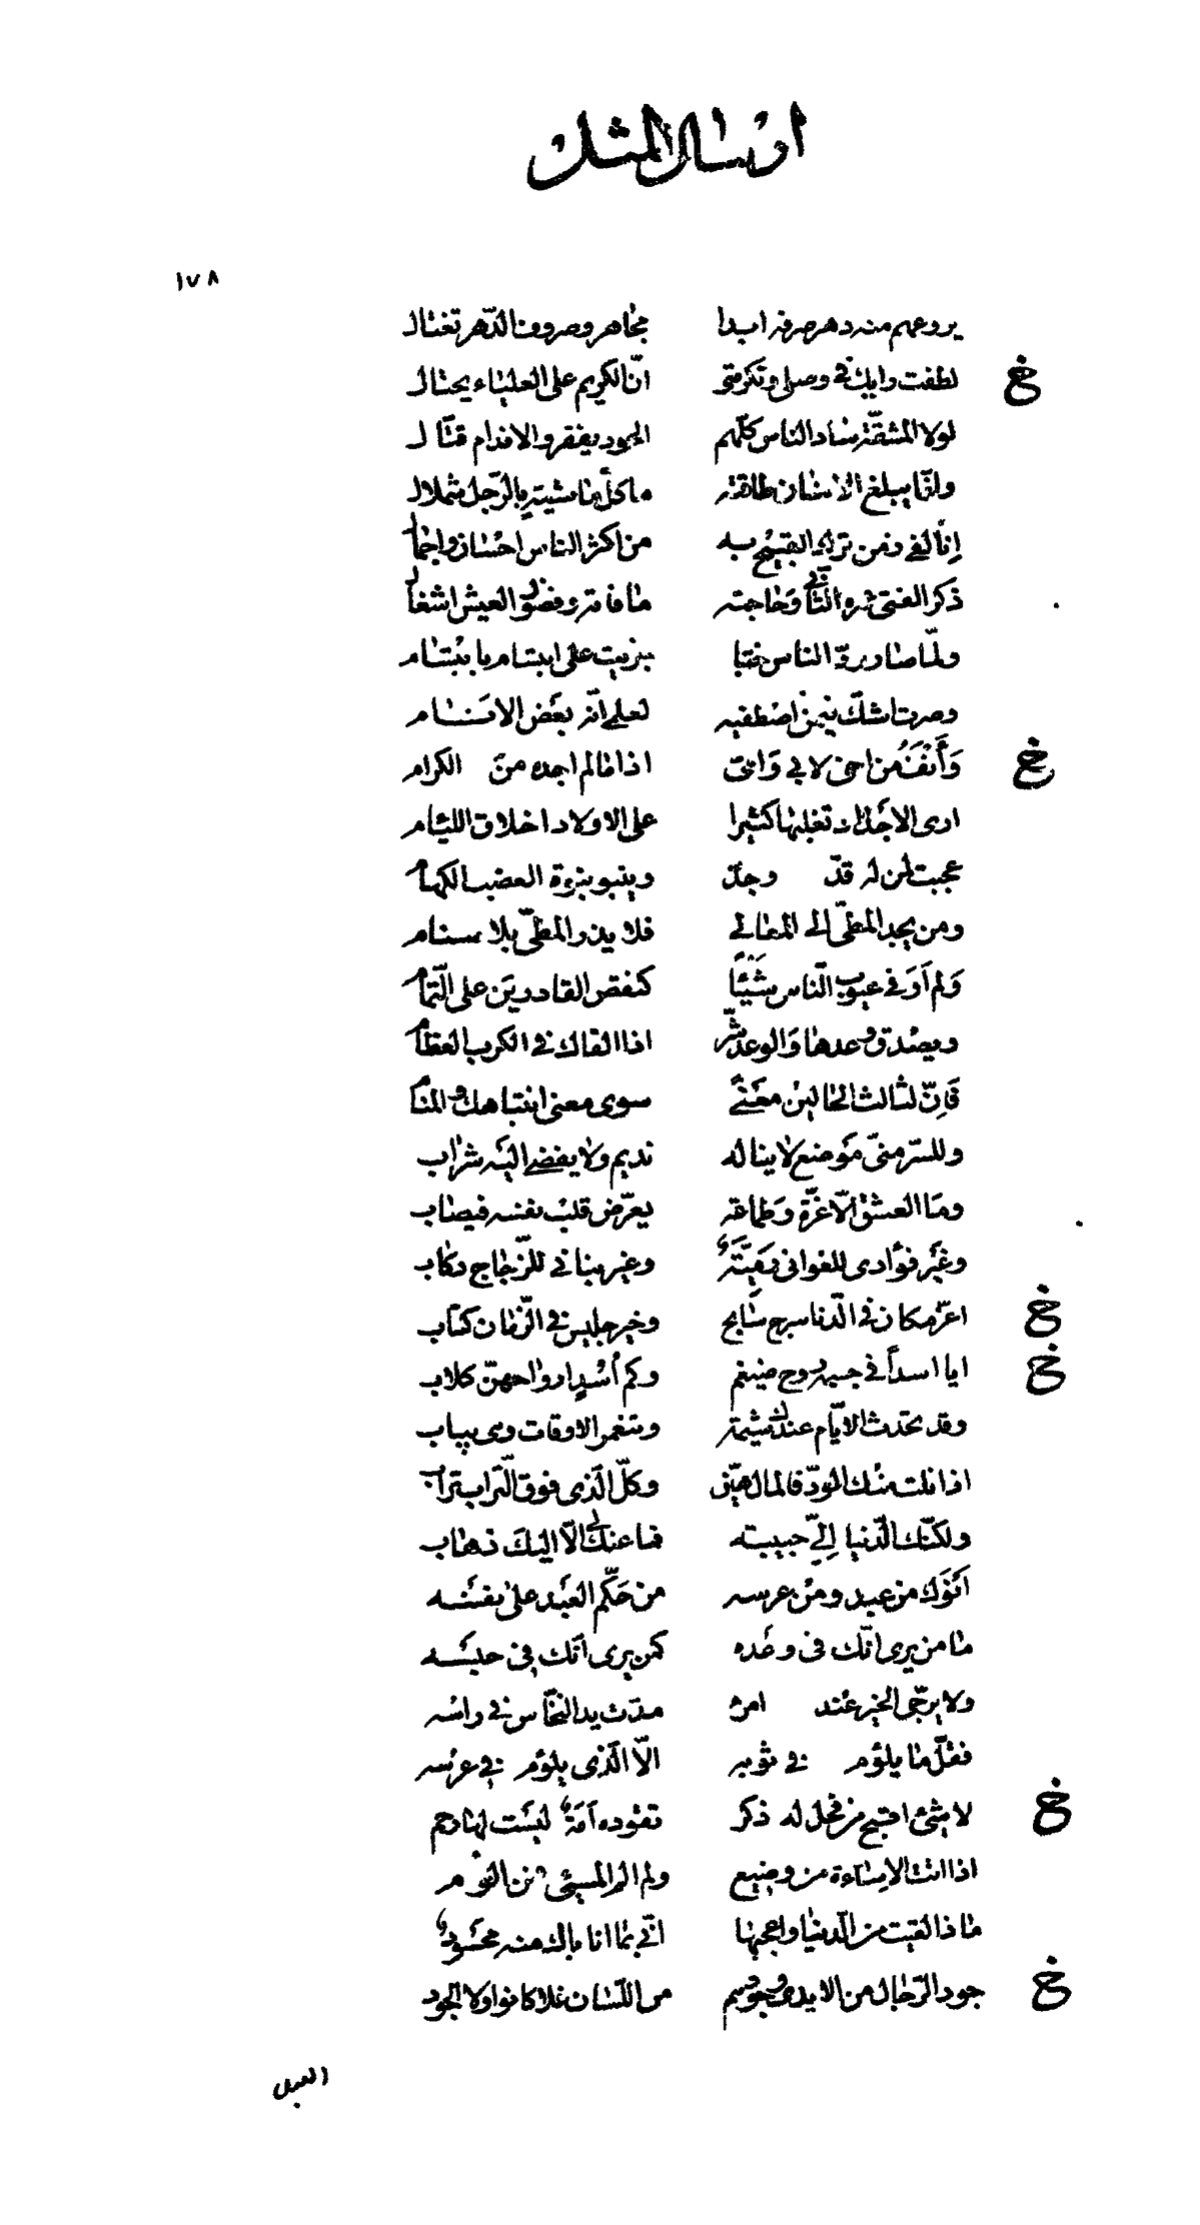 ارسال المثل
١٧٨
يروعهم منه دهر صرفه ابدا مجاهر وصروف الدّهر تغتال
خ لطفت رايك في وصلي وتكرمتي انّ الكريم على العلياء يحتال
لولا المشقّة ساد الناس كلّهم الجود يفقر والاقدام قتّال
وانّما يبلغ الانسان طاقته ما كلّ ماشية بالرّجل شملال
إنا لفي زمن ترك القبيح به من اكثر الناس احسان واجمال
ذكر الفتى عمره الثّاني وحاجته ما فاته وفضول العيش اشغال
ولمّا صار ودّ الناس خبّا جزيت على ابتسام بابتسام
وصرت اشكّ فيمن اصطفيه لعلمي انّه بعض الانام
خ وَأَنَفُ من اخي لابي وامّي اذا ما لم اجده من الكرام
ارى الاجداد تغلبها كثيرا على الاولاد اخلاق اللئام
عجبت لمن له قدّ وحدّ وينبو نبوة العضب الكهام
ومن يجد المطيّ الى المعالي فلا يذر المطيّ بلا سنام
ولم اَرَ في عيوب النّاس شيئًا كنقص القادرين على التّمام
ويصدق وعدها والوعد شرّ اذا القاك في الكرب العظام
فَإنّ لثالث الحالين معنًى سوى معنى انتباهك والمنام
وللسّر منّي موضع لا يناله نديم ولا يفضي اليه شراب
وما العشق الّا غرّة وطماعة يعرّض قلب نفسه فيصاب
وغير فؤادي للغواني رَمِيّةٌ وغير بناني للزّجاج ركاب
خ اعزّ مكان في الدّنا سرج سابح وخير جليس في الزّمان كتاب
خ ايا اسداً في جسمه روح ضيغم وكم اُسْدٍ ارواحهنّ كلاب
وقد تحدث الايّام عندك شيمة وتنعمر الاوقات وهي يباب
اذا نلت منك الودّ فالمال هيّن وكلّ الّذي فوق التّراب تراب
ولكنّك الدّنيا اِليّ حبيبة فما عنك لي الّا اليك ذهاب
اَنوَك من عبد ومن عرسه من حكّم العبد على نفسه
ما من يرى انّك في وعده كمن يرى انّك في حبسه
ولا يرجّى الخير عند امرئ مدّت يد النخّاس في راسه
فقلّ ما يلؤم في ثوبه الّا الّذي يلؤم في غرسه
خ لا شيئ اقبح من فحل له ذكر تقوده اَمَةٌ ليست لها رحم
اذا اتت الاساءة من وضيع ولم الم المسيئ فمن الوم
ماذا لقيت من الدّنيا واعجبها انّي بما انا باك منه محسودُ
خ جود الرّجال من الايدي وجودهم من اللّسان فلا كانوا ولا الجود
العبد